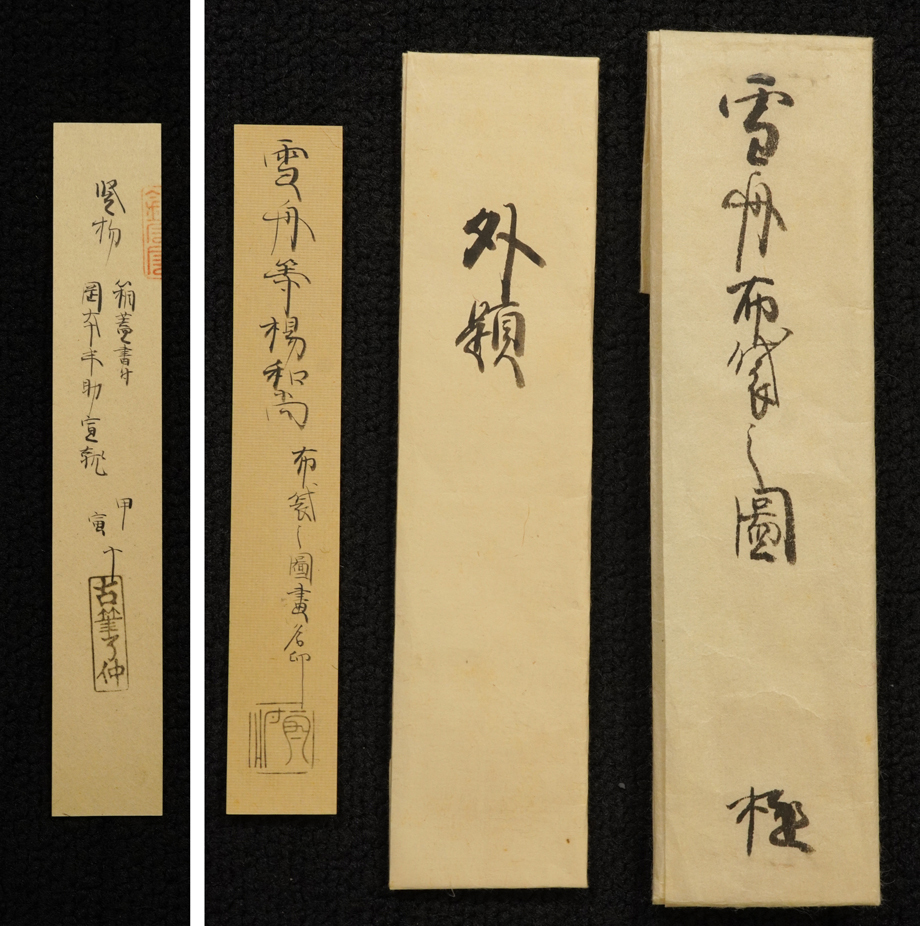 雪舟布袋之圖
極
外題
雪舟等楊和尚
布袋之圖畫名印
竪物
箱蓋書付
岡本半助宣就
甲
寅十
古筆了仲